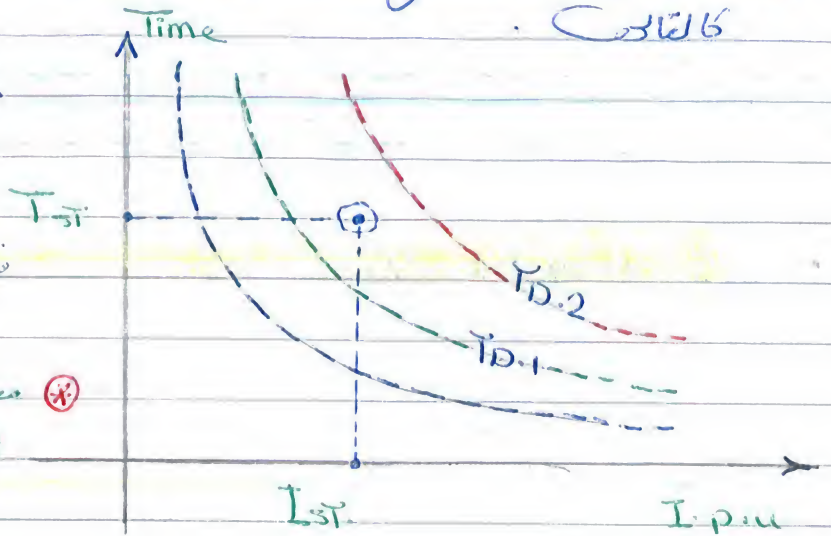 كالتالي .
Time
T_ST
T_D.2
T_D.1
I_ST.
I.p.u